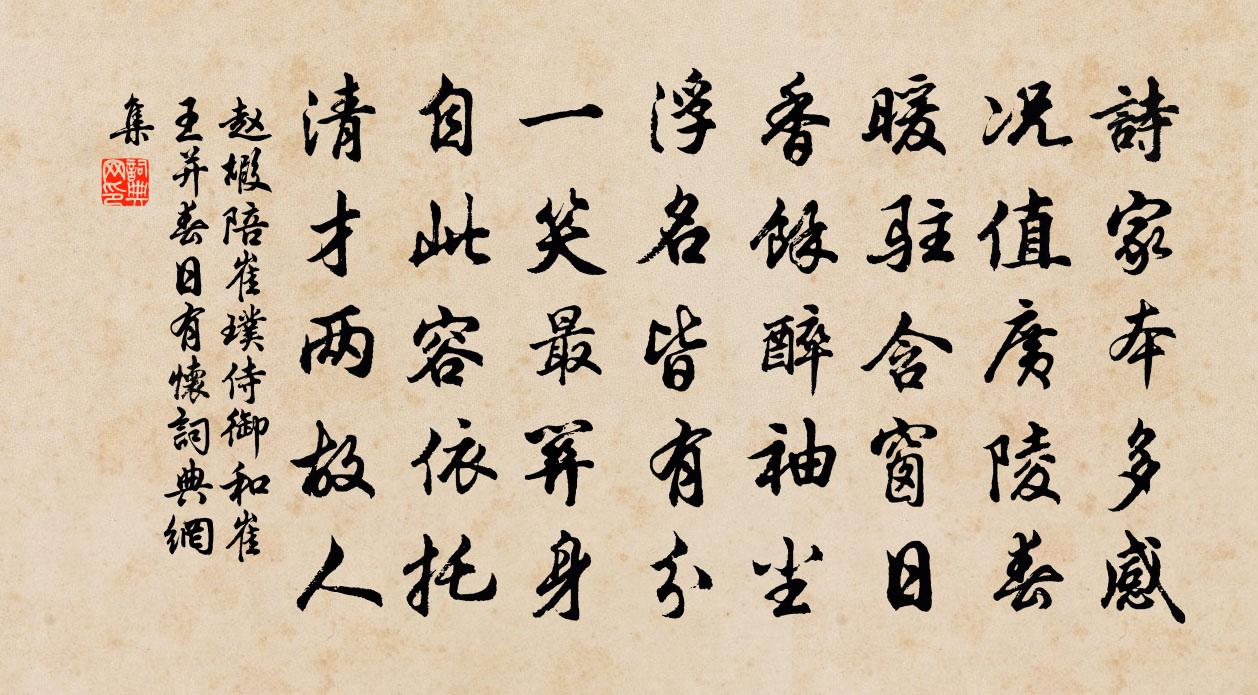 詩家本多感
况值廣陵春
暖駐含窗日
香餘醉袖尘
浮名皆有分
一笑最關身
自此容依托
清才两故人
赵嘏陪崔璞侍御和崔
王并春日有懷詞典網
集
詞典網印